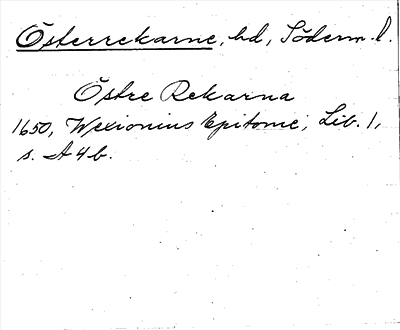 Österrekarne, hd, Söderm. l.
Östre Rekarna
1650, Wexionius Epitome, Lib. 1,
s. A 4 b.